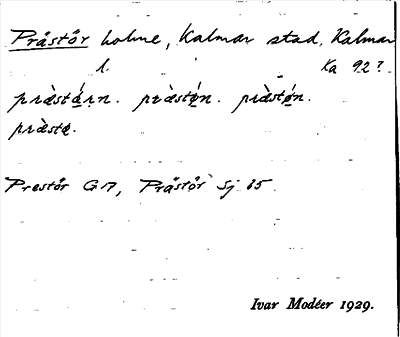 Prästör holme, Kalmar stad, Kalmar
l. Ka 92?
præ̀stǿrn. præ̀støn. præ̀stǿn.
præ̀stø.
Prestör GA, Prästör Sj 65
Ivar Modéer 1929.